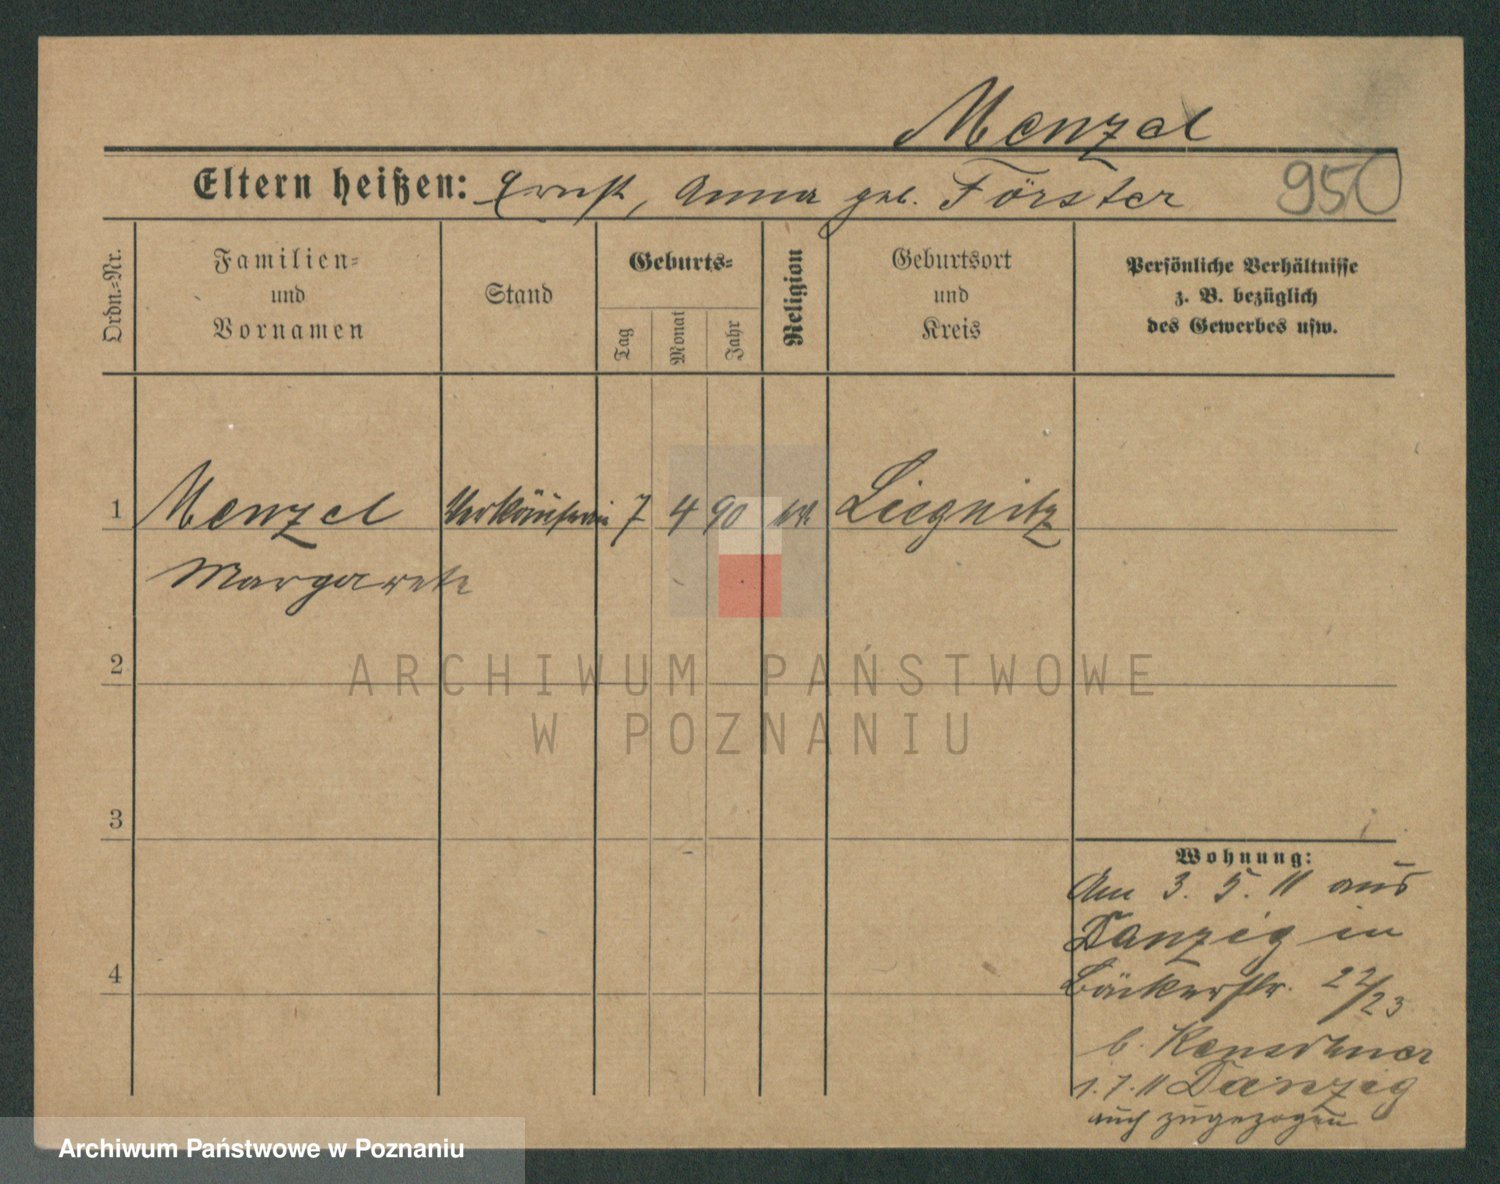 Menzel
Eltern heißen: Ernst, Anna geb. Förster
950
Ordn.-Nr.
Familien-
und
Vornamen
Stand
Geburts-
Tag
Monat
Jahr
Religion
Geburtsort
und
Kreis
Persönliche Verhältnisse
z. B. bezüglich
des Gewerbes usw.
1 Menzel Verkäuferin 7 4 90 Liegnitz
Margarete
2
3
4
Wohnung:
Am 3. 5. 11 aus
Danzig in
Bäckerstr. 22/23
b. Kenschner
1. 7. 11 Danzig
auch zugezogen
ARCHIWUM PAŃSTWOWE
W POZNANIU
Archiwum Państwowe w Poznaniu